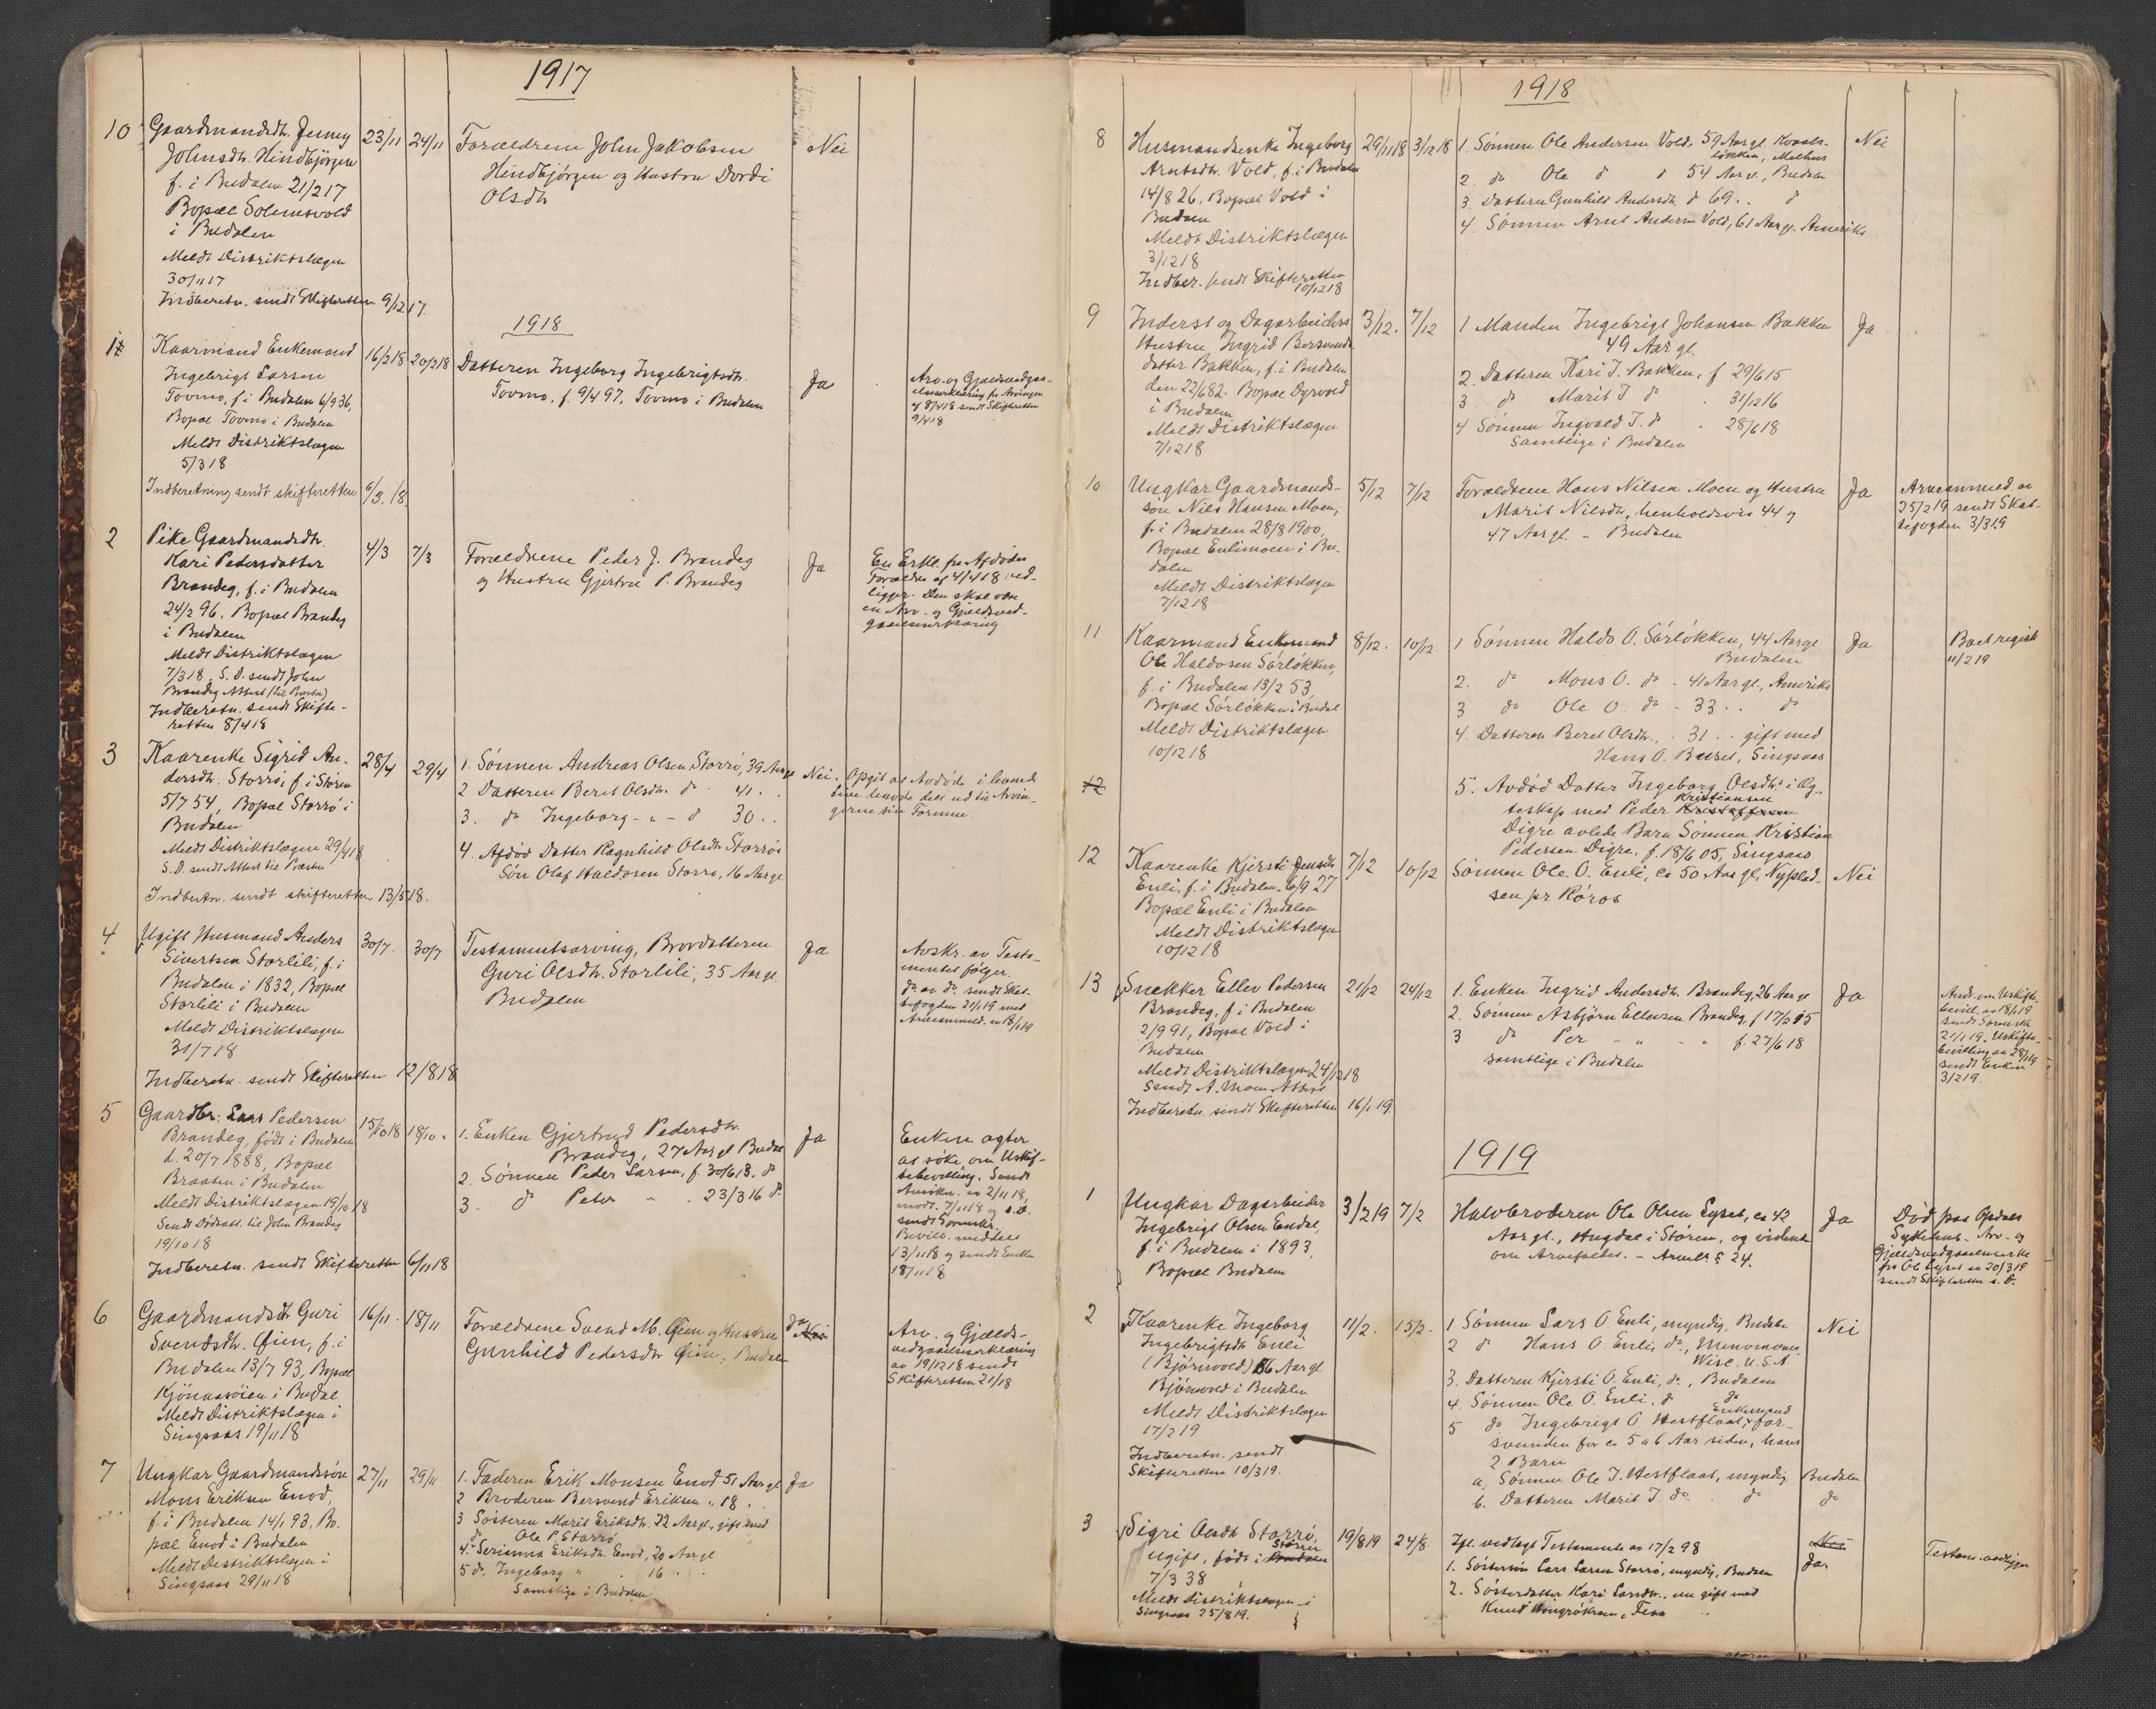 1917
10 Gaardmandsdtr. Jenny 23/11 24/11 Forældrene John Jakobsen Nei
Johnsdtr. Hindbjörgen Hindbjörgen og Hustru Dordi
f. i Budalen 21/2 17 Olsdtr
Bopæl Solemsvold
i Budalen
Meldt Distriktslægen
30/11 17
Indberetn. sendt Skifteretten 9/12 17.
1918
1 Kaarmand Enkemand 16/2 18 20/2 18 Datteren Ingeborg Ingebrigtsdtr. Ja Arv. og Gjældsvedgaa-
Ingebrigt Larsen Tovmo, f. 9/4 97, Tovmo i Budalen elseserklæring fra Arvingen
Tovmo, f. i Budalen 6/9 36, af 8/4 18 sendt Skifteretten
Bopæl Tovmo i Budalen 9/4 18
Meldt Distriktslægen
5/3 18
Indberetning sendt skifteretten 6/3. 18.
2 Pike Gaardmandsdtr. 4/3 7/3 Forældrene Peder J. Brandeg Ja En Erkl. fra Afdödes
Kari Pedersdatter og Hustru Gjertru P. Brandeg Forældre af 4/4 18 ved-
Brandeg, f. i Budalen ligger. Den skal være
24/2 96, Bopæl Brandeg en Arv- og Gjældsved-
i Budalen gaaelseserklæring
Meldt Distriktslægen
7/3 18. S. D. sendt John
Brandeg Attest (til Presten)
Indberetn. sendt Skifte-
retten 8/4 18
3 Kaarenke Sigrid An- 28/4 29/4 1. Sönnen Andreas Olsen Storrö, 39 Aar gl Nei. Opgit at Avdöde i levende
dersdtr. Storrö, f. i Stören 2 Datteren Beret Olsdtr. do 41 . . live havde delt ud til Arvin-
5/7 54, Bopæl Storrö i 3. do Ingeborg - " - do 30 . . gerne sin Formue.
Budalen 4. Afdöd Datter Ragnhild Olsdtr Storrös
Meldt Distriktslægen 29/4 18 Sön Olaf Haldosen Storrö, 16 Aar gl.
S. D. sendt Attest til Præsten
Indberetn. sendt skifteretten 13/5 18.
4 Ugift Husmand Anders 30/7. 30/7 Testamentsarving, Brordatteren Ja Avskr. av Testa-
Sivertsen Storlili, f. i Guri Olsdtr. Storlili, 35 Aar gl. mentet følger.
Budalen i 1832, Bopæl Budalen do av do sendt Skat-
Storlili i Budalen tefogden 21/1 19 med
Meldt Distriktslægen Arveanmeld. av 18/1 19
31/7 18
Indberetn. sendt Skifteretten 12/8 18
5 Gaardbr. Lars Pedersen 15/10 18 18/10. 1. Enken Gjertrud Pedersdtr. Ja Enken agter
Brandeg, født i Budalen Brandeg, 27 Aar gl Budal at söke om Uskif-
d. 20/7 1888, Bopæl 2. Sönnen Peder Larsen, f 30/6 13. do tebevilling. Sendt
Braaten i Budalen 3. do Peter " . 23/3 16 do. Ansökn. av 2/11 18,
Meldt Distriktslægen 19/10 18 modt. 7/11 18 og s. D.
Sendt Dödsatt. til John Brandeg sendt Sorenskr.
19/10 18 Bevill. meddelt
Indberetn. sendt Skifteretten 6/11 18 13/11 18 og sendt Enken
18/11 18
6 Gaardmandsdtr Guri 16/11. 18/11 Forældrene Svend M. Øien og Hustru Ja Nei Arv. og Gjælds-
Svendsdtr. Øien, f. i Gunhild Pedersdtr Øien, Budalen vedgaaelseserklæring
Budalen 13/7 93, Bopæl av 19/12 18 sendt
Kjönaasöien i Budal Skifteretten 21/18
Meldt Distriktslægen i
Singsaas 19/11 18
7 Ungkar Gaardmandssön 27/11 29/11 1. Faderen Erik Monsen Enod 51 Aar gl Ja
Mons Eriksen Enod, 2 Broderen Bersvend Eriksen " 18 . .
f. i Budalen 14/1 93, Bo- 3 Søsteren Marit Eriksdtr. 22 Aar gl., gift med
pæl Enod i Budalen do Ole P. Storrö
Meldt Distriktslægen i 4. Serianna Eriksdtr. Enod, 20 Aar gl
Singsaas 29/11 18 5 do. Ingeborg " . 16 . .
Samtlige i Budalen
1918
8 Husmandsenke Ingeborg 29/11 18 3/12 18 1. Sönnen Ole Andersen Vold, 59 Aar gl. Kvaals- Nei
Arntsdtr. Vold, f. i Budalen lökken, Melhus
14/8 26, Bopæl Vold i 2. do Ole do do 54 Aar gl., Budalen
Budalen 3. Datteren Gunhild Andersdtr. do 69 . . do
Meldt Distriktslægen 4. Sönnen Arnt Andersen Vold, 61 Aar gl. Amerika
3/12 18
Indber. sendt Skifteretten
10/12 18
9 Inderst og Dagarbeiders 3/12. 7/12 1 Manden Ingebrigt Johansen Bakken Ja
Hustru Ingrid Bersvends- 49 Aar gl.
datter Bakken, f. i Budalen 2. Datteren Kari I. Bakken, f 29/6 15
den 22/6 82. Bopæl Dyrvold 3 do Marit I do . 31/12 16
i Budalen 4 Sönnen Ingvald I. do . 28/6 18
Meldt Distriktslægen Samtlige i Budalen
7/12 18
10 Ungkar Gaardmands- 5/12 7/12 Forældrene Hans Nilsen Moen og Hustru Ja Arveanmeld. av
sön Nils Hansen Moen, Marit Nilsdtr, henholdsvis 44 og 25/2 19 sendt Skat-
f. i Budalen 28/8 1900, 47 Aar gl. - Budalen tefogden 3/3 19
Bopæl Enlimoen i Bu-
dalen
Meldt Distriktslægen
7/12 18
11 Kaarmand Enkemand 8/12. 10/12. 1 Sönnen Haldo O. Sörlökken, 44 Aar gl Ja Boet regist.
Ole Haldosen Sörlökken, Budalen 11/2 19
f. i Budalen 13/2 53, 2. do Mons O. do . 41 Aar gl., Amerika
Bopæl Sörlökken i Budal 3 do Ole O. do - 33 . . do
Meldt Distriktslægen 4. Datteren Beret Olsdtr., . 31 . . gift med
10/12 18 Hans O. , Singsaas
12 5. Avdød Datter Ingeborg Olsdtr.s i Æg-
teskap med Peder Kristiansen Kristoffersen
Digre avlede Barn Sönnen Kristian
Pedersen Digre, f. 18/6 05, Singsaas
12 Kaarenke Kjersti Jensdtr 7/12 10/12 Sönnen Ole O. Enli, ca 50 Aar gl, Nyplad- Nei
Enli, f. i Budalen 6/9 27 sen pr Röros
Bopæl Enli i Budalen
Meldt Distriktslægen
10/12 18
13 Snekker Ellev Pedersen 21/12 24/12 1. Enken Ingrid Andersdtr. Brandeg, 26 Aar gl Ja Ansk. om Uskifte-
Brandeg, f. i Budalen 2. Sönnen Asbjörn Ellevsen Brandeg, f 17/2 15 bevill. av 18/1 19
2/9 91, Bopæl Vold i 3 do Per - " - " f. 27/6 18 sendt Sorenskr.
Budalen samtlige i Budalen 21/1 19. Uskifte-
Meldt Distriktslægen 24/12 18 bevilling av 28/1 19
Sendt A. Moen Attest sendt Enken
Indberetn. sendt Skifteretten 16/1 19. 3/2 19.
1919
1 Ungkar Dagarbeider 3/2 19 7/2 Halvbroderen Ole Olsen Lyset, ca 42 Ja Död paa Opdals
Ingebrigt Olsen Endal, Aar gl., Hugdal i Stören, og videnn Sykehus. Arv- og
f. i Budalen i 1893, om Arvefaldet. - Arvel. § 24. Gjældsvedgaaelseserkl.
Bopæl Budalen fra Ole Lyset av 20/3 19
sendt Skifteretten s. D.
2 Kaarenke Ingeborg 11/2. 15/2. 1 Sönnen Lars O. Enli, myndig, Budalen Nei
Ingebrigtsdtr Enli 2 do Hans O. Enli, do, Menomonie,
(Björnvold) 86 Aar gl Wisc. U.S.A
Björnvold i Budalen 3. Datteren Kjersti O. Enli, do, Budalen
Meldt Distriktslægen 4. Sönnen Ole O. Enli, do do
17/2 19 5 do Ingebrigt O Hestflaat, Enkemand for-
Indberetn. sendt svunden for ca 5 a 6 Aar siden, hans
Skifteretten 10/3 19. 2 Barn
a, Sönnen Ole I. Hestflaat, myndig Budalen
b. Datteren Marit I. do . do do
3 Sigri Olsdtr Storrö, 19/8 19 24/8 Ifl. vedlagt Testamente av 17/2 98 Nei Testam. vedligger
ugift, født i Budalen Stören 1. Söstersön Lars Larsen Storrö, myndig, Budalen Ja.
7/3 38 2. Søsterdatter Kari Larsdtr., nu gift med
Meldt Distriktslægen i Knud
Singsaas 25/8 19.